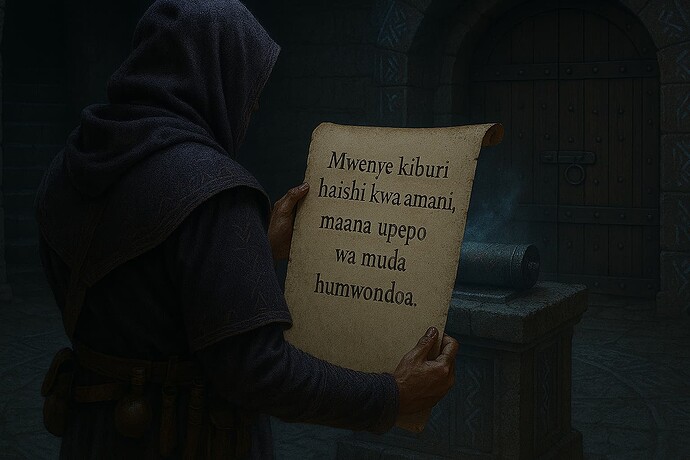 Mwenye kiburi
haishi kwa amani,
maana upepo
wa muda
humwondoa.